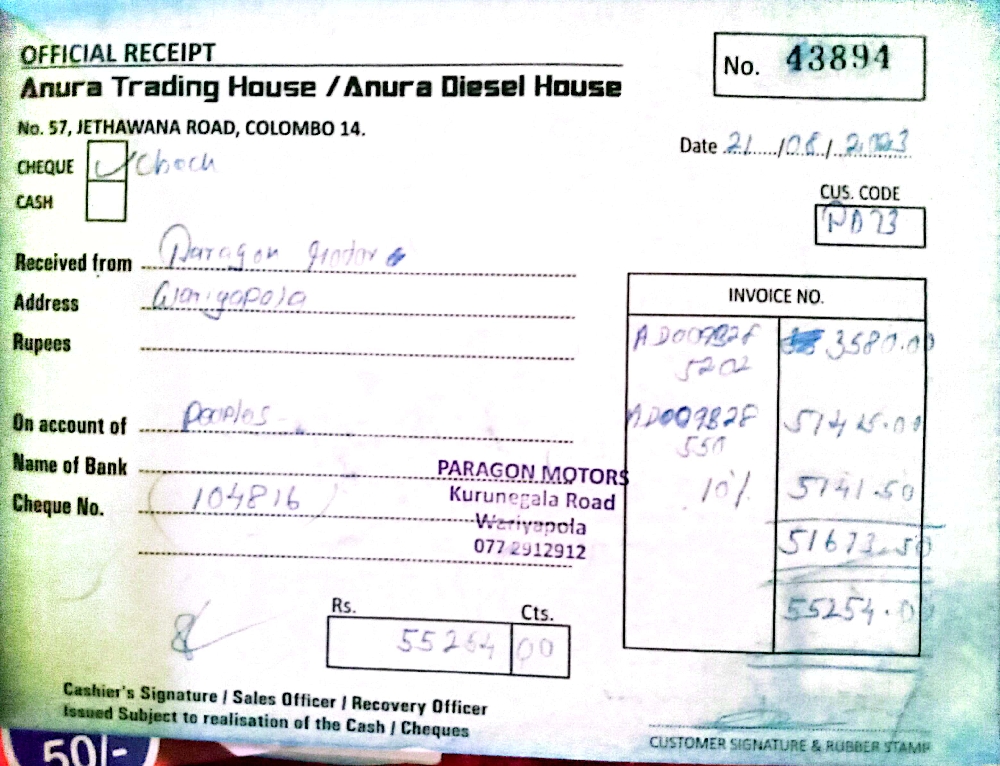 OFFICIAL RECEIPT
No. 43894
Anura Trading House / Anura Diesel House
No. 57, JETHAWANA ROAD, COLOMBO 14.
Date 21/08/2023
CHEQUE
CASH
CUS. CODE
Received from Paragon
Address Wariyapola
INVOICE NO.
Rupees
3580.00
5202
On account of Peoples
Name of Bank
PARAGON MOTORS
Kurunegala Road
Wariyapola
077 2912912
10% 5741.50
Cheque No. 104816
51673.50
55254.00
Rs. Cts.
55254 00
Cashier's Signature / Sales Officer / Recovery Officer
Issued Subject to realisation of the Cash / Cheques
CUSTOMER SIGNATURE & RUBBER STAMP
50/-